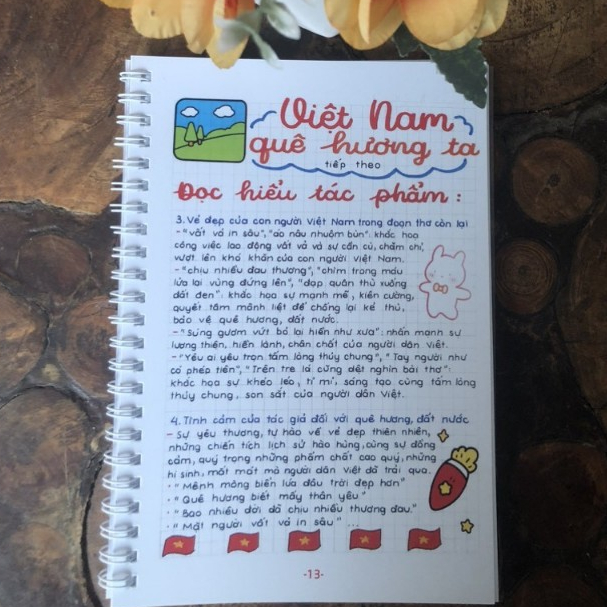 Việt Nam
quê hương ta
tiếp theo
Đọc hiểu tác phẩm :
3. Vẻ đẹp của con người Việt Nam trong đoạn thơ còn lại
- "vất vả in sâu", "áo nâu nhuộm bùn": khắc họa
công việc lao động vất vả và sự cần cù, chăm chỉ,
vượt lên khó khăn của con người Việt Nam.
- "chịu nhiều đau thương", "chìm trong máu
lửa lại vùng đứng lên", "đạp quân thù xuống
đất đen": khắc họa sự mạnh mẽ, kiên cường,
quyết tâm mãnh liệt để chống lại kẻ thù,
bảo vệ quê hương, đất nước.
- "Súng gươm vứt bỏ lại hiền như xưa": nhấn mạnh sự
lương thiện, hiền lành, chân chất của người dân Việt.
- "Yêu ai yêu trọn tấm lòng thủy chung", "Tay người như
có phép tiên", "Trên tre lá cũng dệt nghìn bài thơ":
khắc họa sự khéo léo, tỉ mỉ, sáng tạo cùng tấm lòng
thủy chung, son sắt của người dân Việt.
4. Tình cảm của tác giả đối với quê hương, đất nước
- Sự yêu thương, tự hào về vẻ đẹp thiên nhiên,
những chiến tích lịch sử hào hùng, cùng sự đồng
cảm, quý trọng những phẩm chất cao quý, những
hi sinh, mất mát mà người dân Việt đã trải qua.
· "Mênh mông biển lúa đâu trời đẹp hơn"
· "Quê hương biết mấy thân yêu"
· "Bao nhiêu đời đã chịu nhiều thương đau."
· "Mặt người vất vả in sâu" ...
-13-